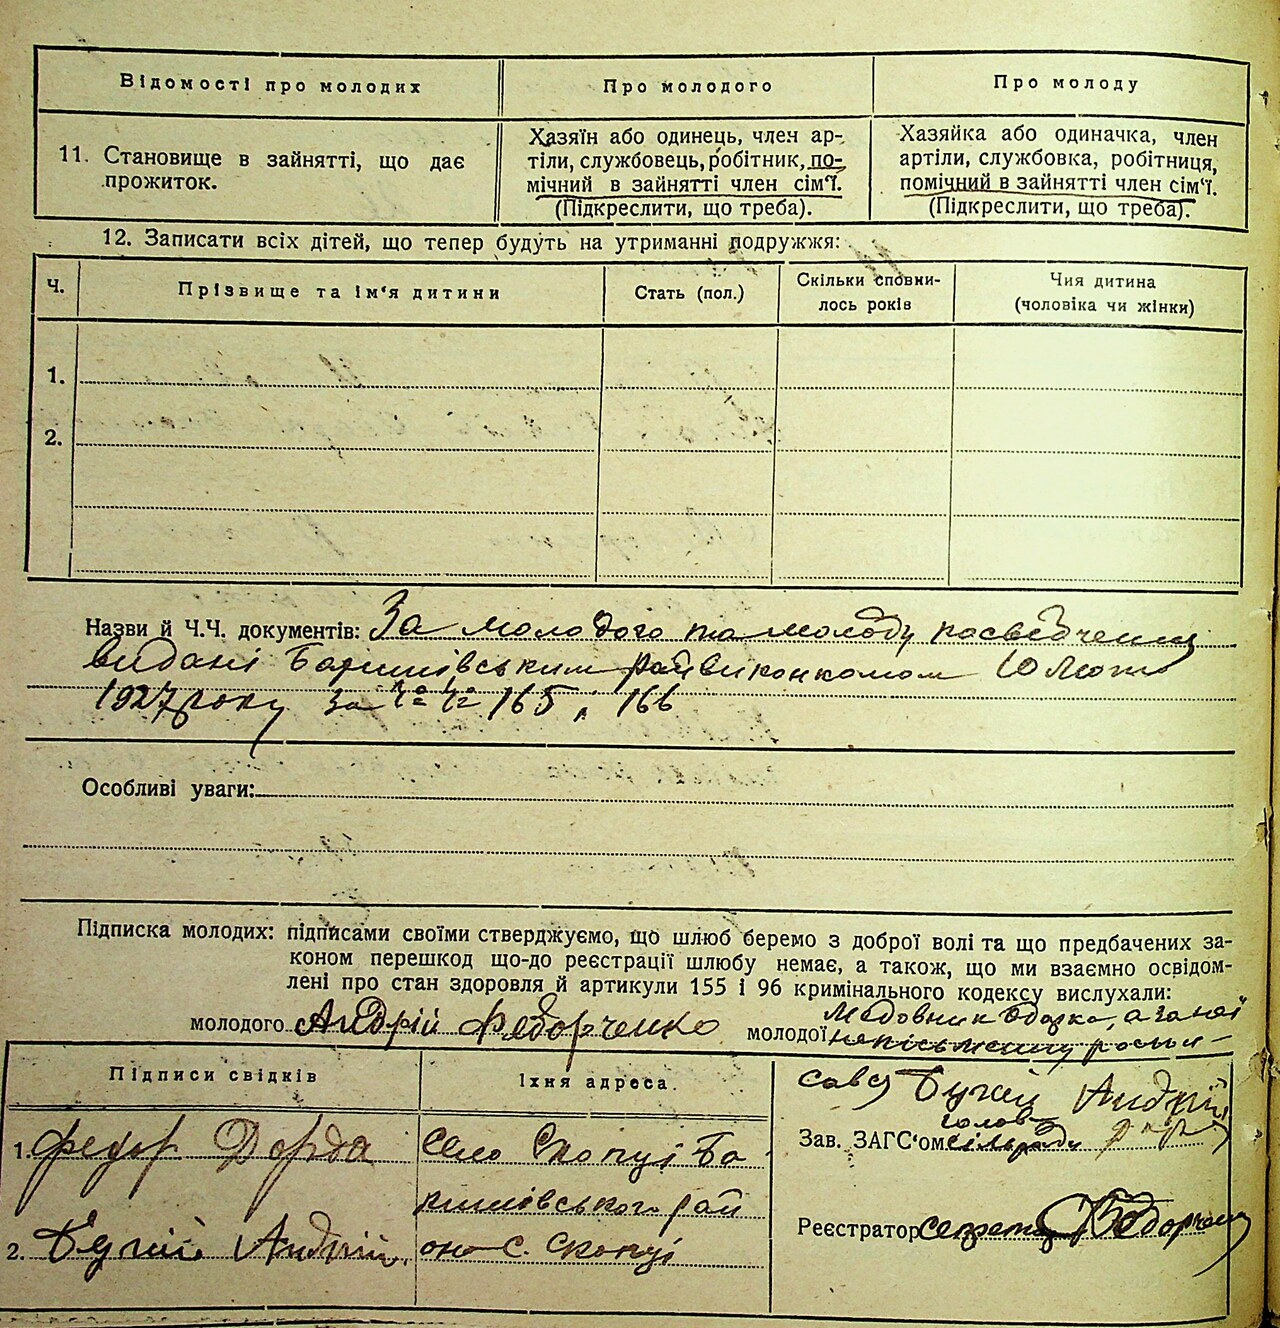 Відомості про молодих
Про молодого
Про молоду
11. Становище в зайнятті, що дає
прожиток.
Хазяїн або одинець, член ар-
тіли, службовець, робітник, по-
мічний в зайнятті член сім'ї.
(Підкреслити, що треба).
Хазяйка або одиначка, член
артіли, службовка, робітниця,
помічний в зайнятті член сім'ї.
(Підкреслити, що треба).
12. Записати всіх дітей, що тепер будуть на утриманні подружжя:
Ч.
Прізвище та ім'я дитини
Стать (пол.)
Скільки сповни-
лось років
Чия дитина
(чоловіка чи жінки)
1.
2.
Назви й Ч.Ч. документів: За молодого та молоду посвідчення
видані Баришівським Райвиконкомом 10 лютого
1927 року за ч. ч. 165 і 166
Особливі уваги:
Підписка молодих: підписами своїми стверджуємо, що шлюб беремо з доброї волі та що предбачених за-
коном перешкод що-до реєстрації шлюбу немає, а також, що ми взаємно освідом-
лені про стан здоровля й артикули 155 і 96 кримінального кодексу вислухали:
молодого Андрій Федорченко
молодої Медовник Одарка, а за неї
неписьменну
Підписи свідків
Їхня адреса
1. Федор Дорда
село Скопці Ба
ришівського рай
2. Бугай Андрій
оно с. Скопці
Бугай Андрій
Зав. ЗАГС'ом голов сільради
Реєстратор секретар Федорченко